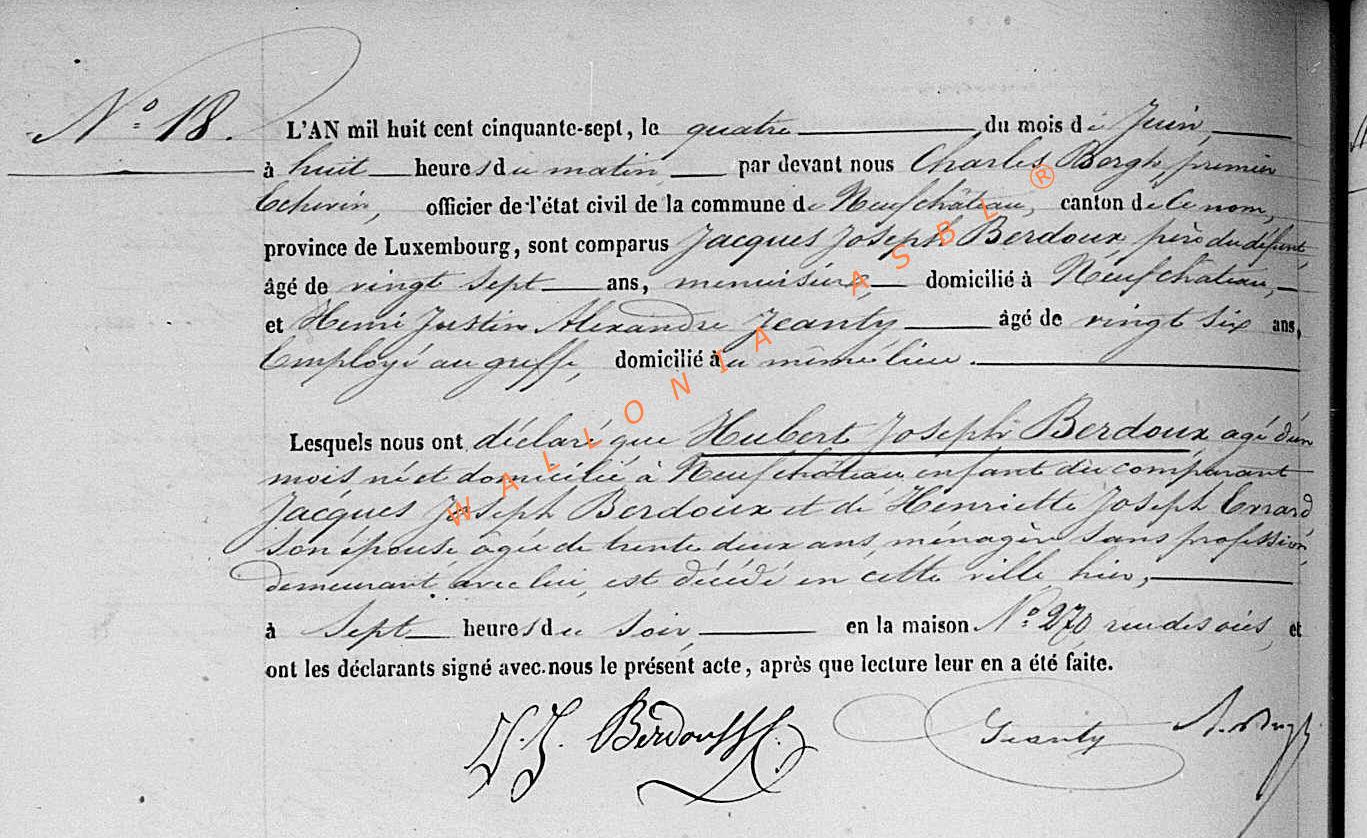 N° 18.
L'AN mil huit cent cinquante-sept, le quatre du mois de Juin,
à huit heures du matin par devant nous Charles Bergh, premier
Echevin, officier de l'état civil de la commune de Neufchâteau, canton de ce nom,
province de Luxembourg, sont comparus Jacques Joseph Berdoux père du défunt
âgé de vingt sept ans, menuisier, domicilié à Neufchâteau,
et Henri Justin Alexandre Jeanty âgé de vingt six ans,
Employé au greffe, domicilié au même lieu.
Lesquels nous ont déclaré que Hubert Joseph Berdoux agé d'un
mois né et domicilié à Neufchâteau enfant du comparant
Jacques Joseph Berdoux et de Henriette Joseph Errard
son épouse âgée de trente deux ans, ménagère sans profession,
demeurant avec lui, est décédé en cette ville hier,
à Sept heures du soir, en la maison N° 270 rue des oies, et
ont les déclarants signé avec nous le présent acte, après que lecture leur en a été faite.
J. J. Berdoux Jeanty
WALLONIA ASBL ®